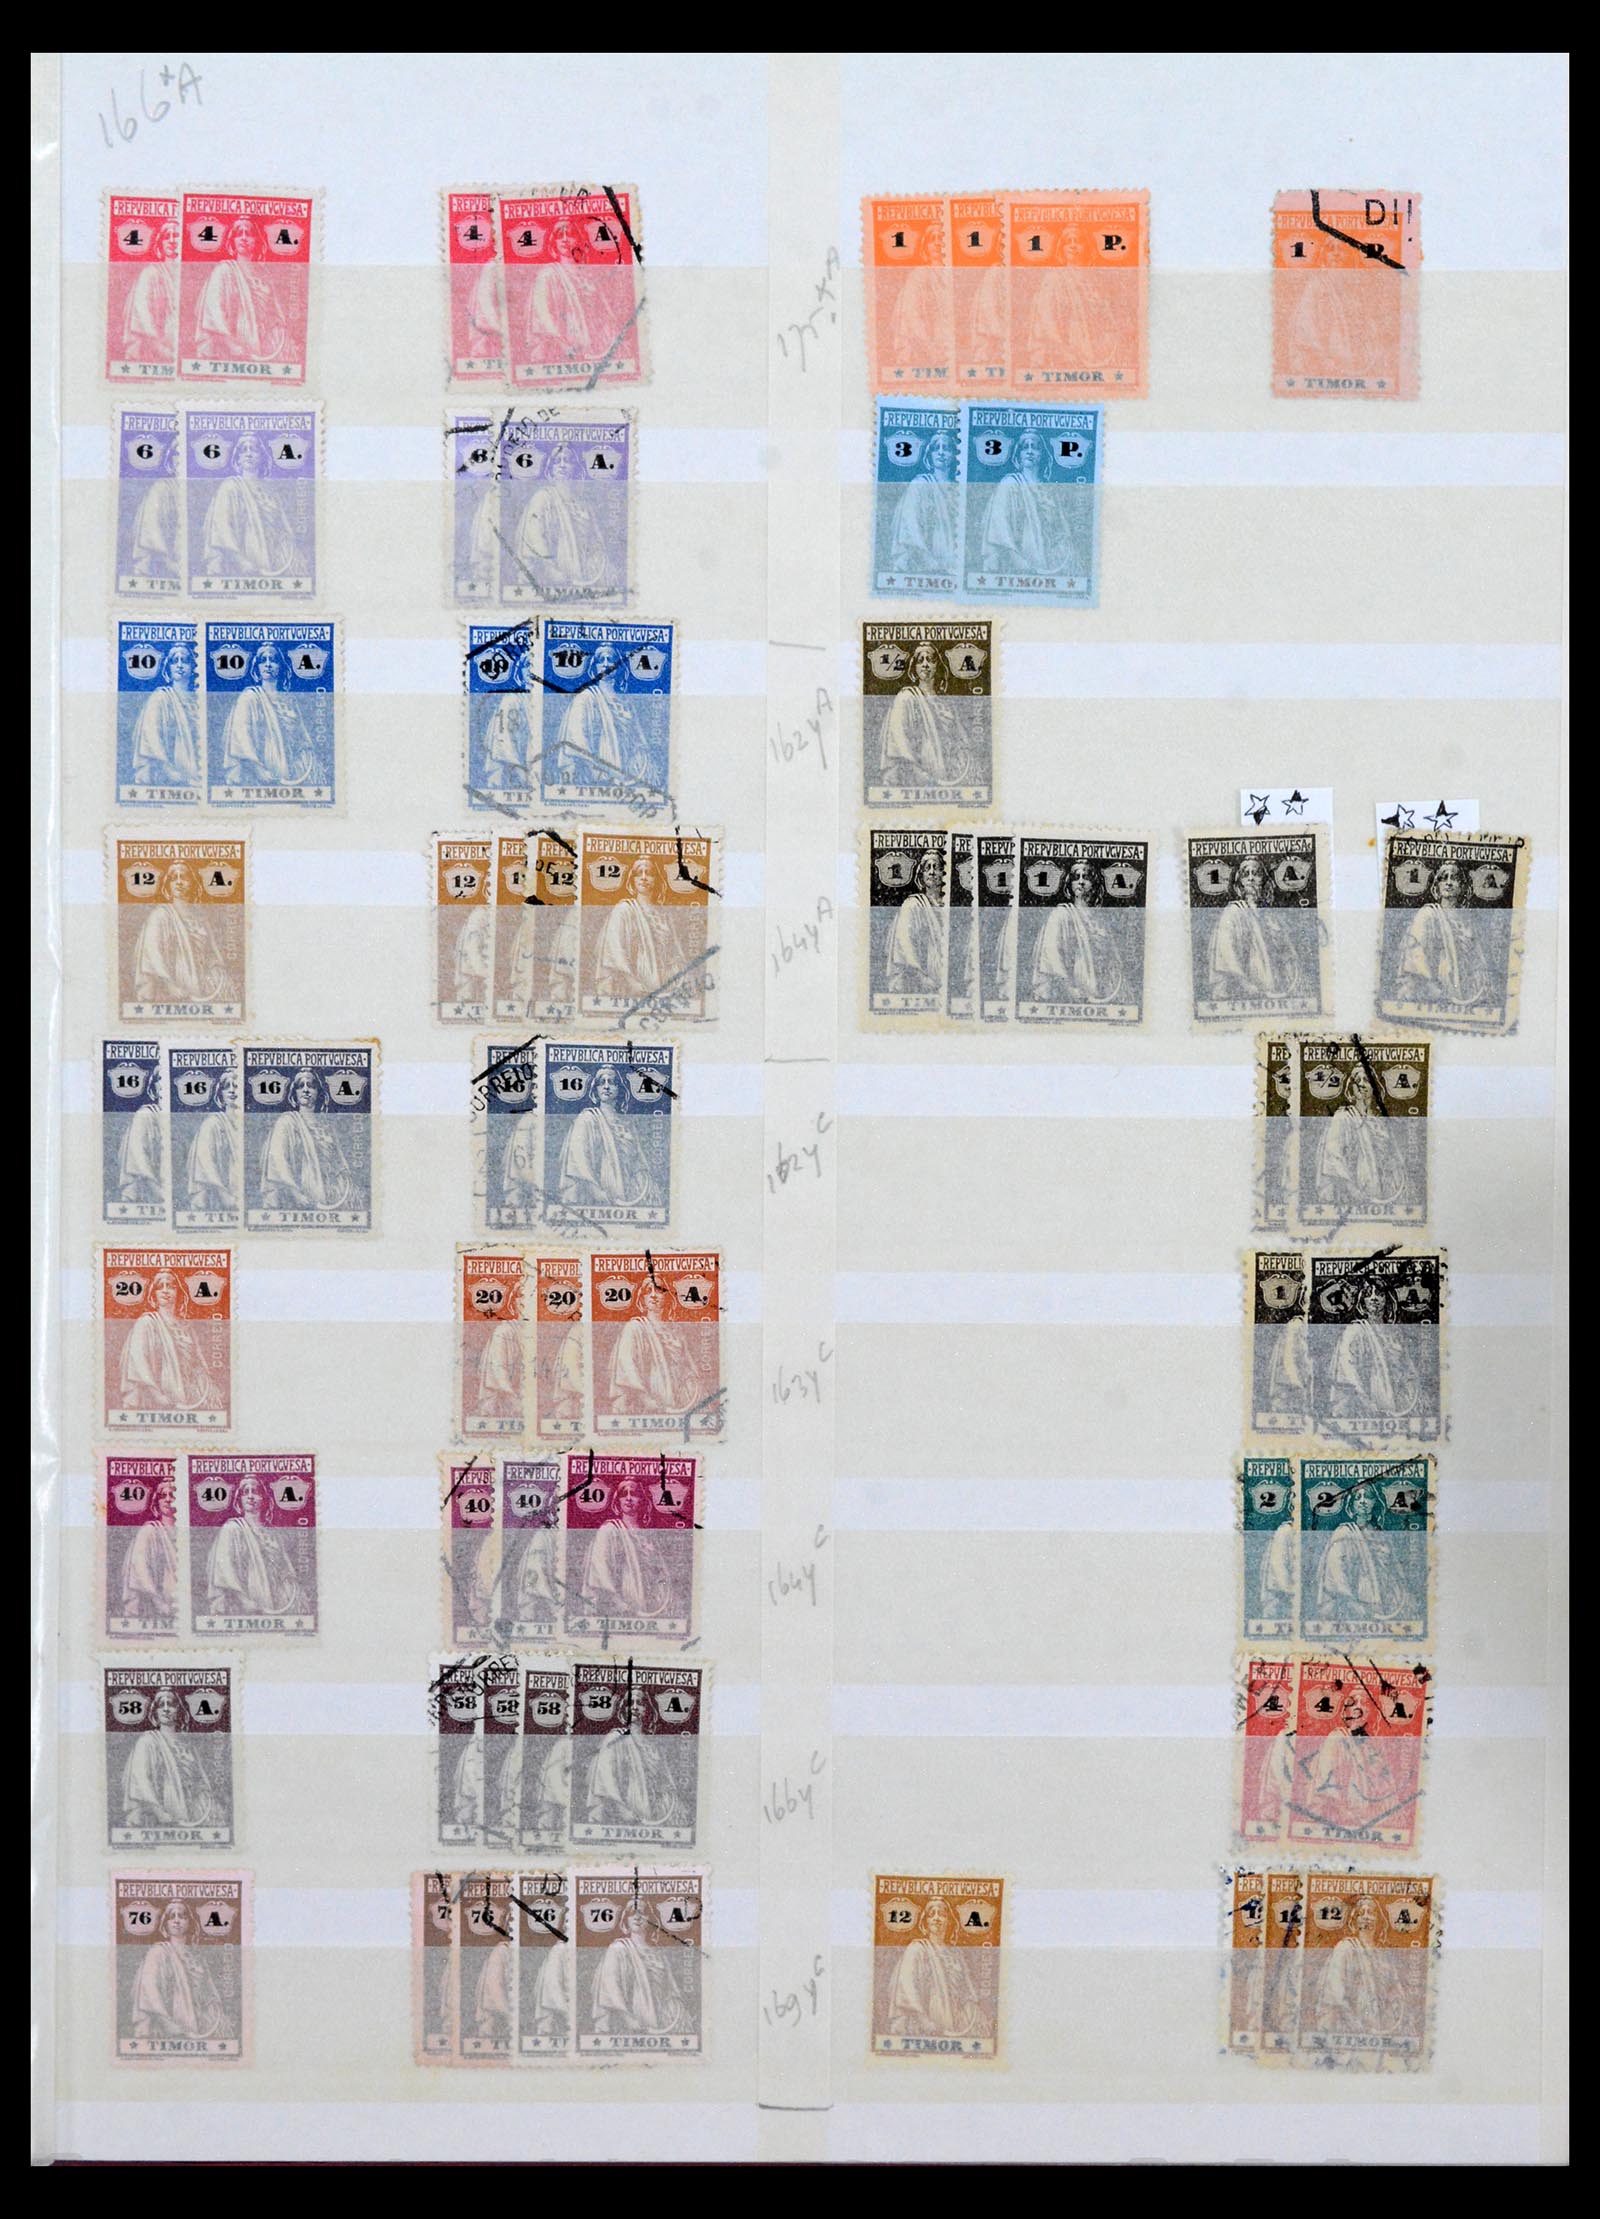 166*A
REPVBLICA P REPVBLICA PORTVGVESA
4 4 A.
TIM TIMOR
REPVB REPVBLICA PORTVGVESA
4 4 A.
TI TIMOR
REPVBLICA P REPVBLIC REPVBLICA PORTVGVESA
1 1 1 P.
TIM TI TIMOR
REPVBLICA PORTVGVESA
DI
1 P.
TIMOR
175xA
REPVBLIC REPVBLICA PORTVGVESA
6 6 A.
CORREIO
TIM TIMOR
PORTVGVESA
6 6 A.
TIMOR
REPVBLICA PO REPVBLICA PORTVGVESA
3 3 P.
CORREIO
TIMO TIMOR
REPVBLICA POR REPVBLICA PORTVGVESA
10 10 A.
CORREIO
TIMO TIMOR
REPVBLICA PORTVGVESA
10 10 A.
REPVBLICA PORTVGVESA
1/2 A.
CORREIO
TIMOR
162yA
REPVBLICA PORTVGVESA
12 A.
CORREIO
TIMOR
REPVBLIC REPVBLICA PORTVGVESA
12 1 12 12 A.
CORREIO
TIMOR
CORREIO
REPVBLICA PO REPV REPVBLICA PORTVGVESA
1 1 1 A.
CORREIO
TIM TIMOR
REPVBLICA PORTVGVESA
1 A.
TIMOR
REPVBLICA PORTVGVESA
1 A.
TIMOR
164yA
REPVBLIC REPVBLICA P REPVBLICA PORTVGVESA
16 16 16 A.
CORREIO
TIM TIM TIMOR
REPVBLICA PORTVGVESA
16 16 A.
CORREIO
CORREIO
TIMOR
1/2 A.
TIMOR
162yC
REPVBLICA PORTVGVESA
20 A.
CORREIO
TIMOR
REPVBLICA REPVBL REPVBLICA PORTVGVESA
20 20 20 A.
CORREIO
TIM T TIMOR
REPVBLI REPVBLICA
1 1 A.
TIMOR
163yC
REPVBLICA P REPVBLICA PORTVGVESA
40 40 A.
CORREIO
TIM TIMOR
REPVBL REPVBLIC REPVBLICA PORTVGVESA
40 40 40 A.
CORREIO
TI TIMOR
REPVBL REPVBLICA PORTVGVESA
2 2 A.
TI TIMOR
164yC
REPVBLICA PORTVGVESA
58 A.
CORREIO
TIMOR
REPVBLICA PORTVGVESA
58 58 58 58 A.
CORREIO
TIMOR
REPVBLICA PORTVGVESA
4 4 A.
TIMOR
166yC
REPVBLICA PORTVGVESA
76 A.
CORREIO
TIMOR
REPVBLICA PORTVGVESA
7 76 76 76 A.
CORREIO
TIMOR
REPVBLICA PORTVGVESA
12 A.
CORREIO
TIMOR
REPVBLICA PORTVGVESA
1 12 12 A.
TIMOR
169yC